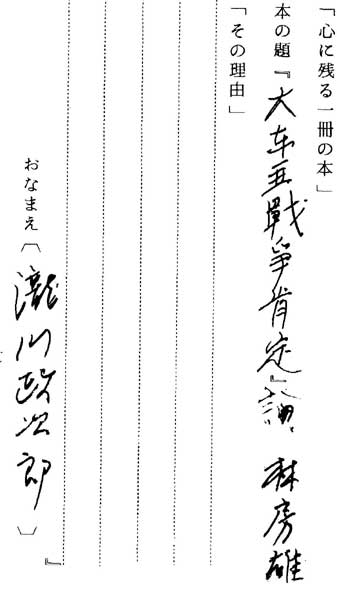 「心に残る一冊の本」
本の題『大东亜戰爭肯定』論 林房雄
「その理由」
おなまえ〔瀧川政次郎〕
』